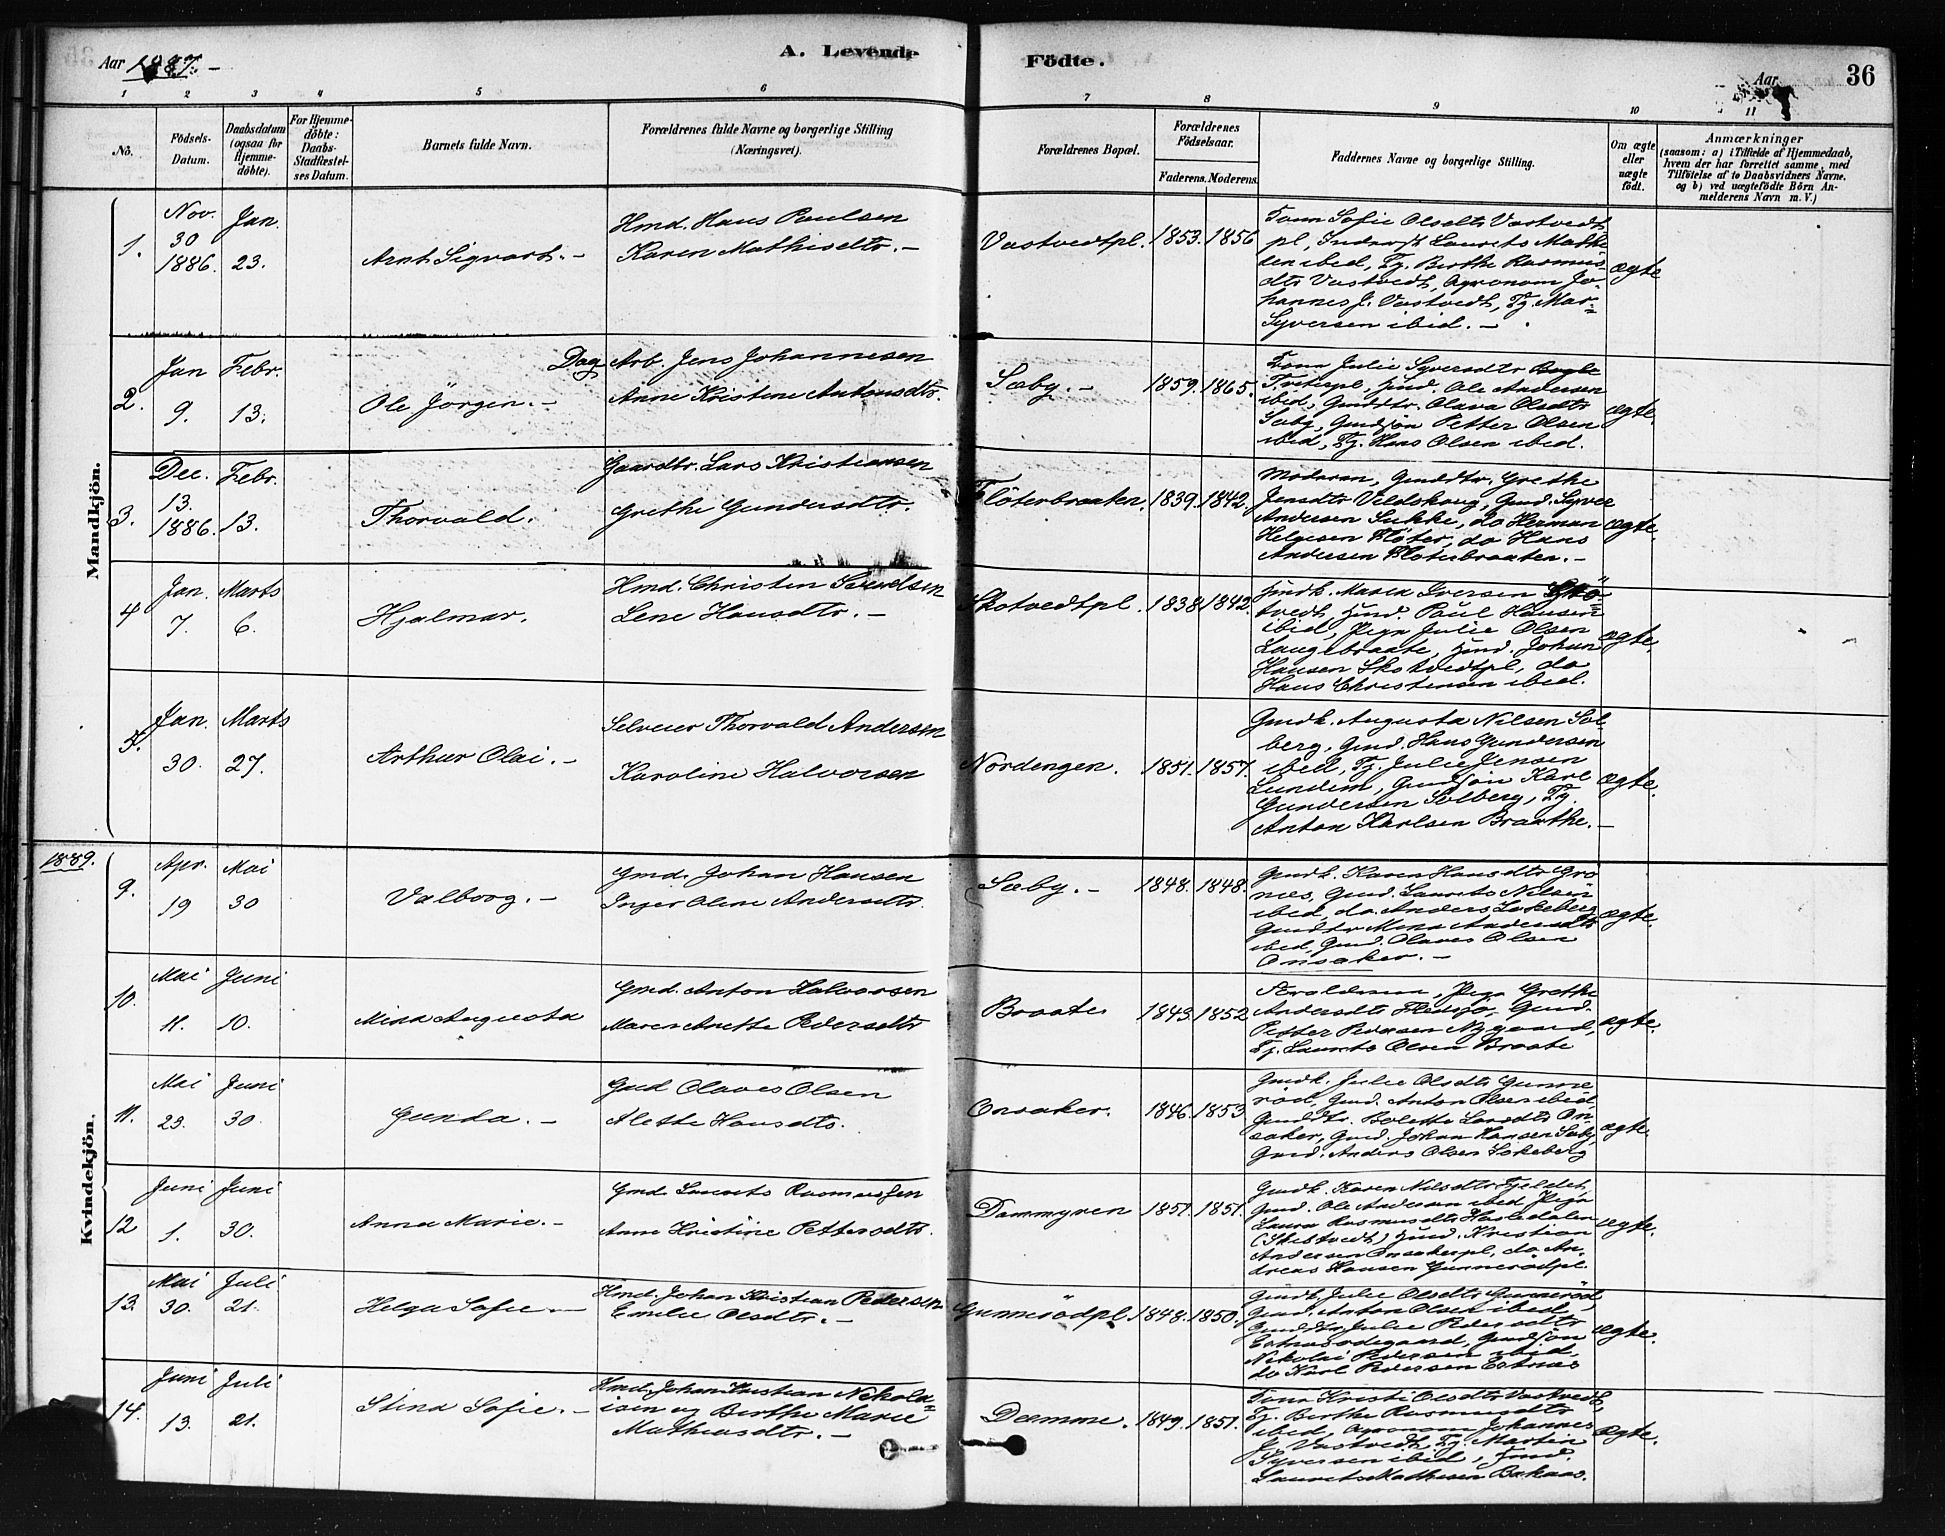 Aar 1887. –
A. Levende
Födte.
Aar
36
1 2 3 4 5 6 7 8 9 10 11
No.
Födsels-Datum.
Daabsdatum (ogsaa for Hjemme-döbte).
For Hjemme-döbte: Daabs-Stadfæstel-ses Datum.
Barnets fulde Navn.
Forældrenes fulde Navne og borgerlige Stilling (Næringsvei).
Forældrenes Bopæl.
Forældrenes Födselsaar.
Faderens. Moderens.
Faddernes Navne og borgerlige Stilling.
Om ægte eller uægte födt.
Anmærkninger
(saasom: a) i Tilfælde af Hjemmedaab,
hvem der har forrettet samme, med
Tilföielse af to Daabsvidners Navne,
og b) ved uægtefödte Börn An-
melderens Navn m. V.)
Mandkjön.
1.
Nov. 30 1886.
Jan. 23.
Arnt Sigvart. –
Hmd. Hans Paulsen
Karen Mathisdtr. –
Vastvedtpl.
1853. 1856
Kona Sofie Olsdtr Vastvedt
pl, Inderst Laurits Mathi
sen ibid, Tj. Berthe Rasmus
dtr Vastvedt, Agronom Jo-
hannes J. Vastvedt, Tj. Mar=
Syversen ibid. –
ægte
2.
Jan 9.
Febr. 13.
Ole Jörgen. –
Dag Arb. Jens Johannesen
Anne Kristine Antonsdtr.
Sæby. –
1859. 1865.
Kona Julie Syversdtr
Tveterpl, Hmd. Ole Andersen
ibid, Gmddtr. Olava Olsdtr
Sæby, Gmdsön Petter Olsen
ibid, Tj. Hans Olsen ibid.
ægte.
3.
Dec. 13. 1886.
Febr. 13.
Thorvald.
Gaardbr. Lars Kristiansen
Grethe Gundersdtr.
Flöterbraaten.
1839. 1842.
Moderen, Gmddtr. Grethe
Jensdtr Vildskoug, Gmd. Syver
Andersen Sukke, do Herman
Helgesen Flöter, do Hans
Andersen Flöterbraaten. –
ægte.
4
Jan. 7.
Marts 6.
Hjalmar.
Hmd. Christen
Lene Hansdtr. –
Skotvedtpl.
1838 1842.
Hmdk. Maren Iversen Skö=
tvedt, Hmd. Paul Hansen
ibid, Pige Julie Olsen
Langebraate, Hmd. Johan
Hansen Skotvedtpl, do
Hans Christensen ibid.
ægte.
5.
Jan. 30.
Marts 27.
Arthur Olai. –
Selveier Thorvald Andersen
Karoline Halvorsen
Nordengen.
1851. 1857.
Gmdk. Augusta Nilsen Sol=
berg, Gmd. Hans Gundersen
ibid, Tj. Julie Jensen
Lundem, Gmdsön Karl
Gundersen Solberg, Tj.
Anton Karlsen Braathe. –
ægte.
1889.
Kvindekjön.
9.
Apr. 19
Mai 30
Valborg. –
Gmd. Johan Hansen
Inger Oline Andersdtr.
Sæby. –
1848. 1848.
Gmdk. Karen Hansdtr Gro
næs, Gmd. Laurits Nilsen
ibid, do Anders Lökeberg,
Gmddtr Mina Andersdtr
ibid, Gmd. Olaves Olsen
Onsaker. –
ægte.
10.
Mai 11.
Juni 10.
Mina Augusta
Gmd. Anton Halvorsen
Maren Anette Pedersdtr
Braate
1843. 1852
Forældrene, Pige Grethe
Andersdtr Fledsjø, Gmd.
Petter Pedersen Nygaard,
Tj. Laurits Olsen Braate
ægte.
11.
Mai 23.
Juni 30.
Gunda. –
Gmd Olaves Olsen
Alette Hansdtr.
Onsaker.
1846. 1853
Gmdk. Julie Olsdtr Gunne
röd, Gmd. Anton Olsen ibid,
Gmddtr. Bolette Larsdtr On
saker, Gmd. Johan Hansen Sæby,
Gmd. Anders Olsen Lökeberg
ægte.
12
Juni 1.
Juni 30.
Anna Marie. –
Gmd. Laurits Rasmussen
Anne Kristine Pettersdtr.
Dammyren
1851. 1851.
Gmdk. Karen Nilsdtr Fjeldet,
Gmd. Ole Andersen ibid, Pige
Laura Rasmusdtr Hasledalen
(Skistvedt) Hmd. Kristian
Andersen Onsakerpl, do An-
dreas Hansen Gunnerödpl.
ægte.
13.
Mai 30.
Juli 21.
Helga Sofie. –
Hmd. Johan Kristian Pedersen
Emilie Olsdtr. –
Gunnerödpl.
1848. 1850.
Gmdk Julie Olsdtr Gunneröd,
Gmd. Anton Olsen ibid,
Gmddtr Julie Pedersdtr
Gmdsön
Nikolai Pedersen ibid,
do Karl Pedersen
ægte.
14.
Juni 13.
Juli 21.
Stina Sofie. –
Hmd. Johan Kristian Nikola=
isen og Berthe Marie
Mathiasdtr. –
1849. 1851.
Kona Kristi Olsdtr Vastvedt,
Tj. Berthe Rasmusdtr
ibid, Agronom Johannes
J. Vastvedt, Tj. Martin
Syversen ibid, Hmd.
Laurits Mathisen Bakaas.
ægte.